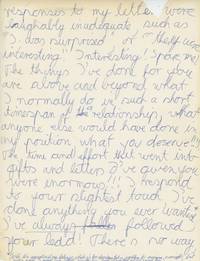 responses to my letter were
laughably inadequate such as
"I was surprised" or "They were
interesting"! Interesting! Spare me.
The things I've done for you
are above and beyond what
I normally do in such a short
timespan of the relationship, what
anyone else would have done in
my position what you deserve!!
The time and effort that went into
gifts and letters I've given you
were enormous!!! I respond
to your slightest touch. I've
done anything you ever wanted
I've always followed
your lead! There is no way